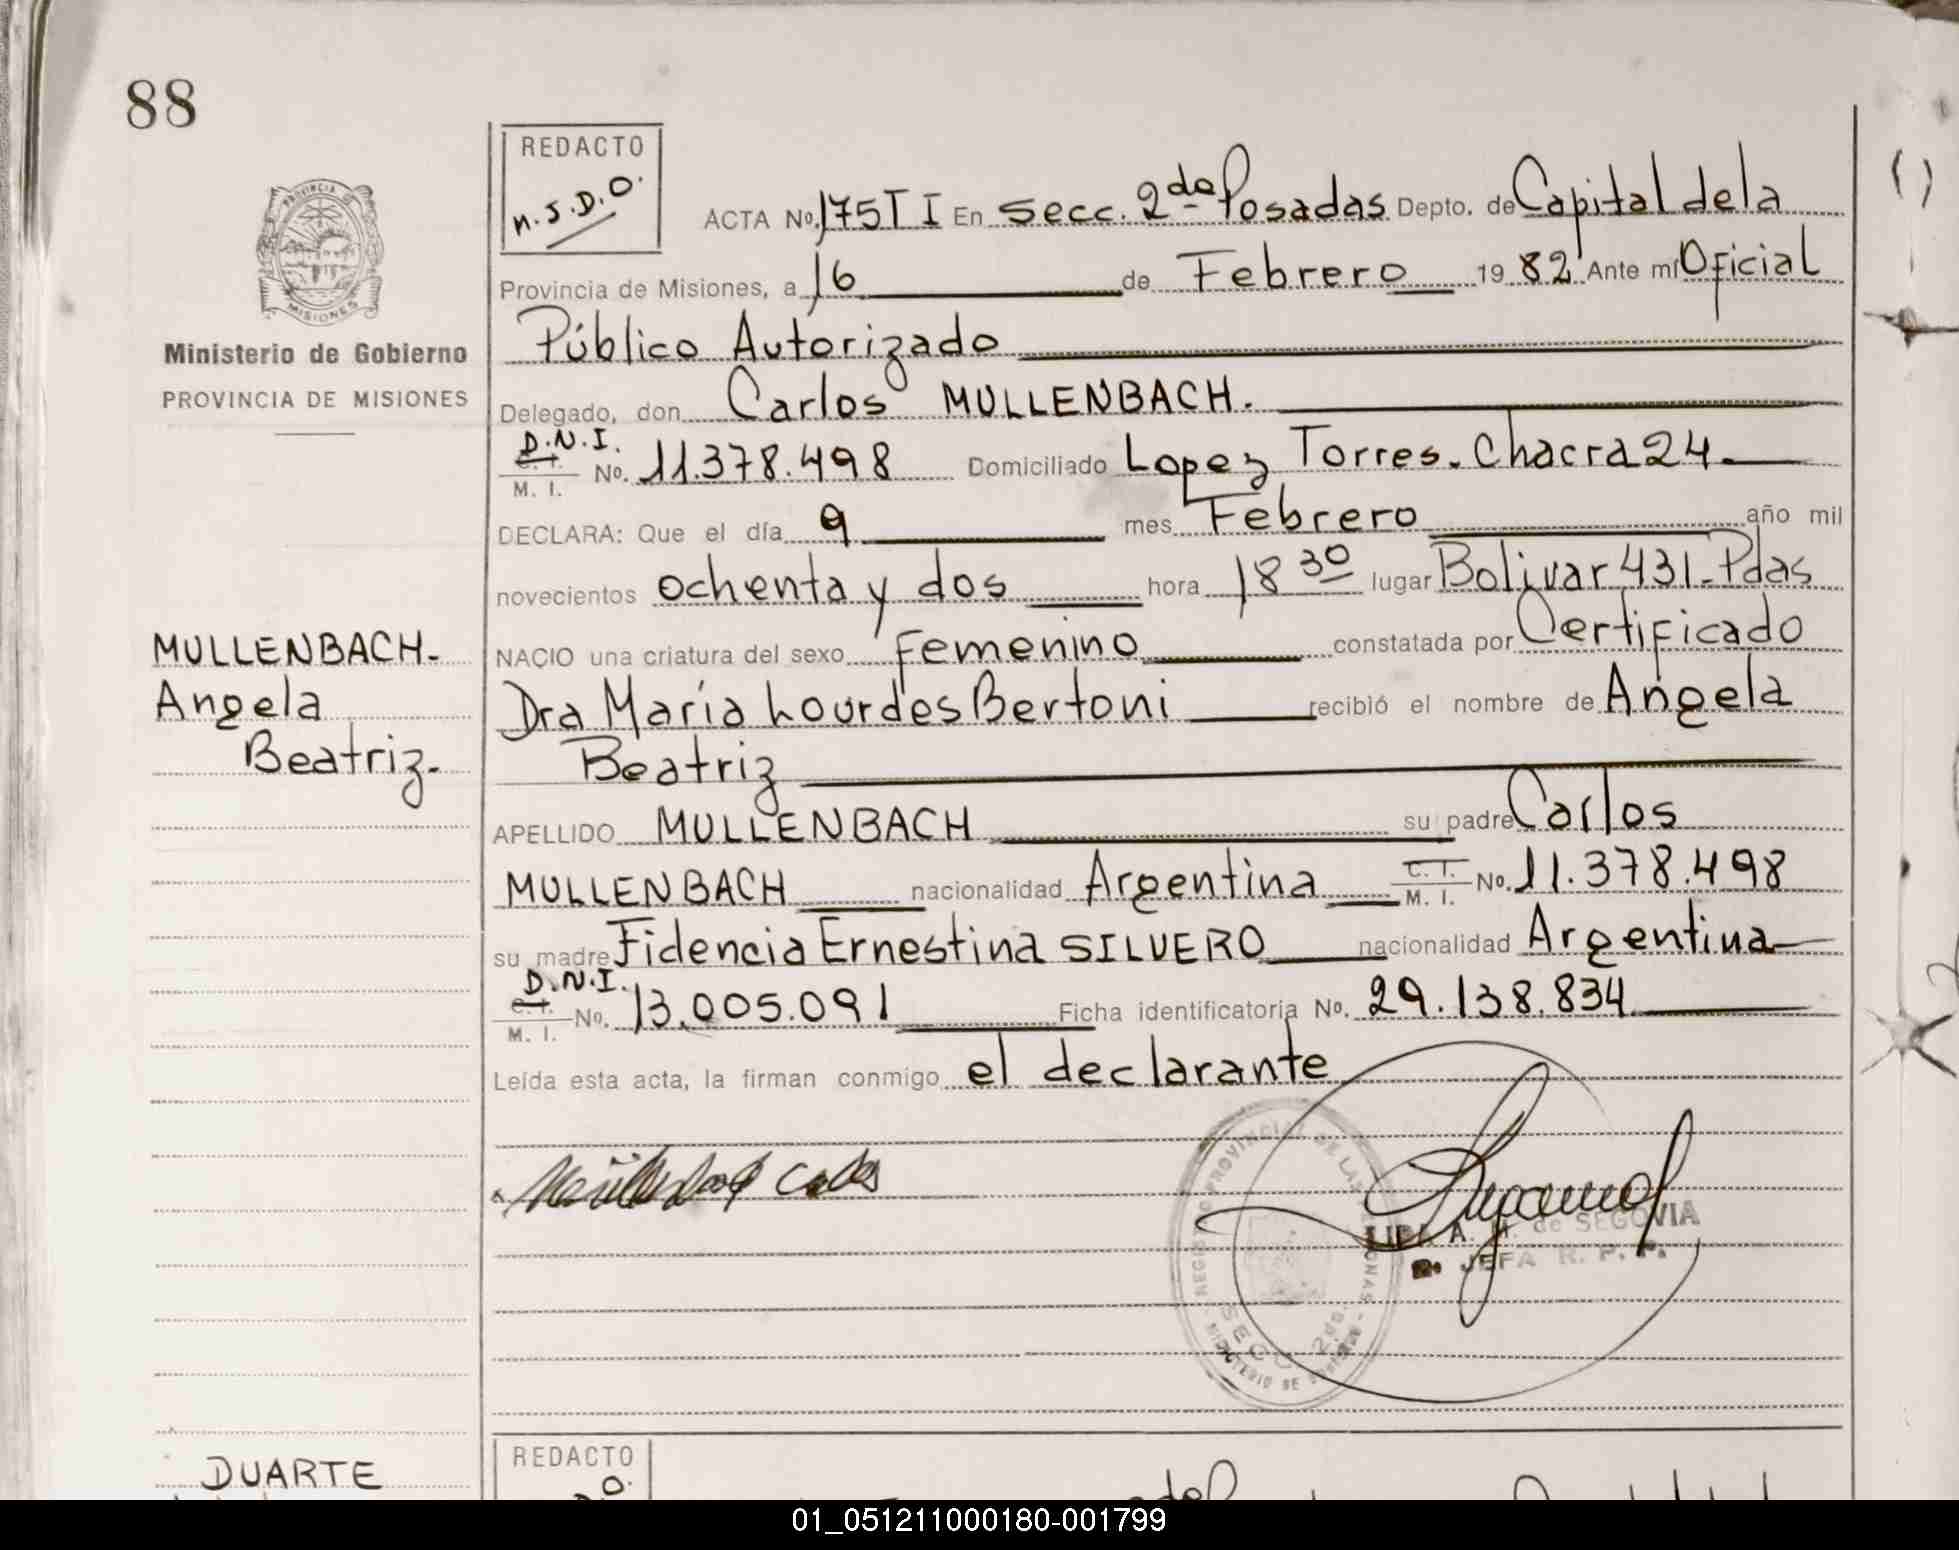 88
REDACTO
n.s.D.O.
ACTA No. 175 T I En Secc. 2da Posadas Depto. de Capital de la
Provincia de Misiones, a 16 de Febrero 1982 Ante mí Oficial
Público Autorizado
Delegado, don Carlos MULLENBACH.
D.N.I.
C. I.
M. I. No. 11.378.498 Domiciliado Lopez Torres. Chacra 24.
DECLARA: Que el día 9 mes Febrero año mil
novecientos ochenta y dos hora 18 30 lugar Bolivar 431-Pdas
NACIO una criatura del sexo Femenino constatada por Certificado
Dra María Lourdes Bertoni recibió el nombre de Angela
Beatriz
APELLIDO MULLENBACH su padre Carlos
MULLENBACH nacionalidad Argentina C. I. M. I. No. 11.378.498
su madre Fidencia Ernestina SILVERO nacionalidad Argentina
D.N.I.
C. I.
M. I. No. 13.005.091 Ficha identificatoria No. 29.138.834
Leída esta acta, la firman conmigo el declarante
PROVINCIA DE
MISIONES
Ministerio de Gobierno
PROVINCIA DE MISIONES
MULLENBACH-
Angela
Beatriz.
REGISTRO PROVINCIAL DE LAS PERSONAS - MINISTERIO DE GOBIERNO
SECC. 2da.
A. M. de SEGOVIA
JEFA R. P. P.
DUARTE
REDACTO
01_051211000180-001799